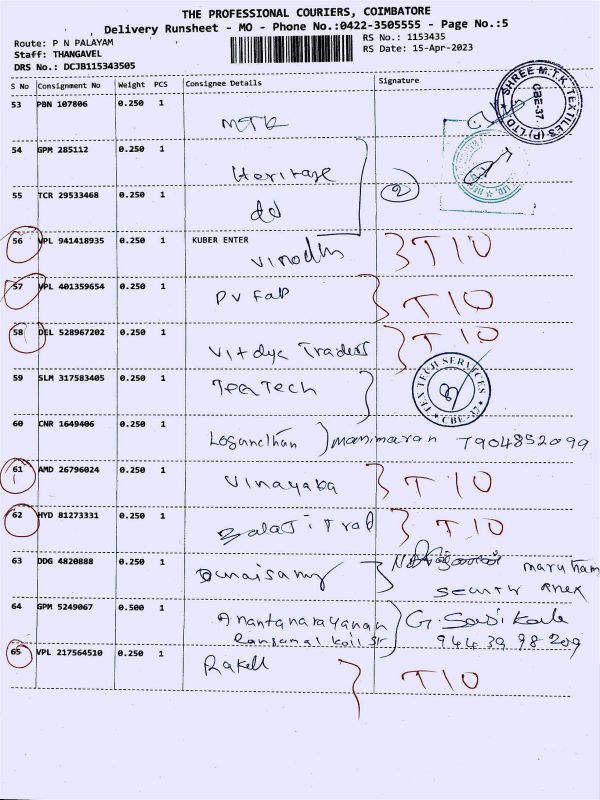 THE PROFESSIONAL COURIERS, COIMBATORE
Delivery Runsheet - MO - Phone No.:0422-3505555 - Page No.:5
Route: P N PALAYAM
Staff: THANGAVEL
DRS No.: DCJB115343505
RS No.: 1153435
RS Date: 15-Apr-2023
S No Consignment No Weight PCS Consignee Details Signature
53 PBN 107806 0.250 1
MTK
SHREE M.T.K TEXTILES (P) LTD.
CBE-37.
54 GPM 285112 0.250 1
Heritage
55 TCR 29533468 0.250 1
dd
2
56 VPL 941418935 0.250 1 KUBER ENTER
Vinodh T10
57 VPL 401359654 0.250 1
PV Fab T10
58 DEL 528967202 0.250 1
Traders T10
59 SLM 317583405 0.250 1
Tex Tech
TEX TECH SERVICES
CBE-37
60 CNR 1649406 0.250 1
Loganathan manimaran 7904852099
61 AMD 26796024 0.250 1
Vinayaba T10
62 HYD 81273331 0.250 1
Balaji Trad T10
63 DDG 4820888 0.250 1
Duraisamy
64 GPM 5249067 0.500 1
Anantanarayanan
G. Sasikala
94439 98209
65 VPL 217564510 0.250 1
T10